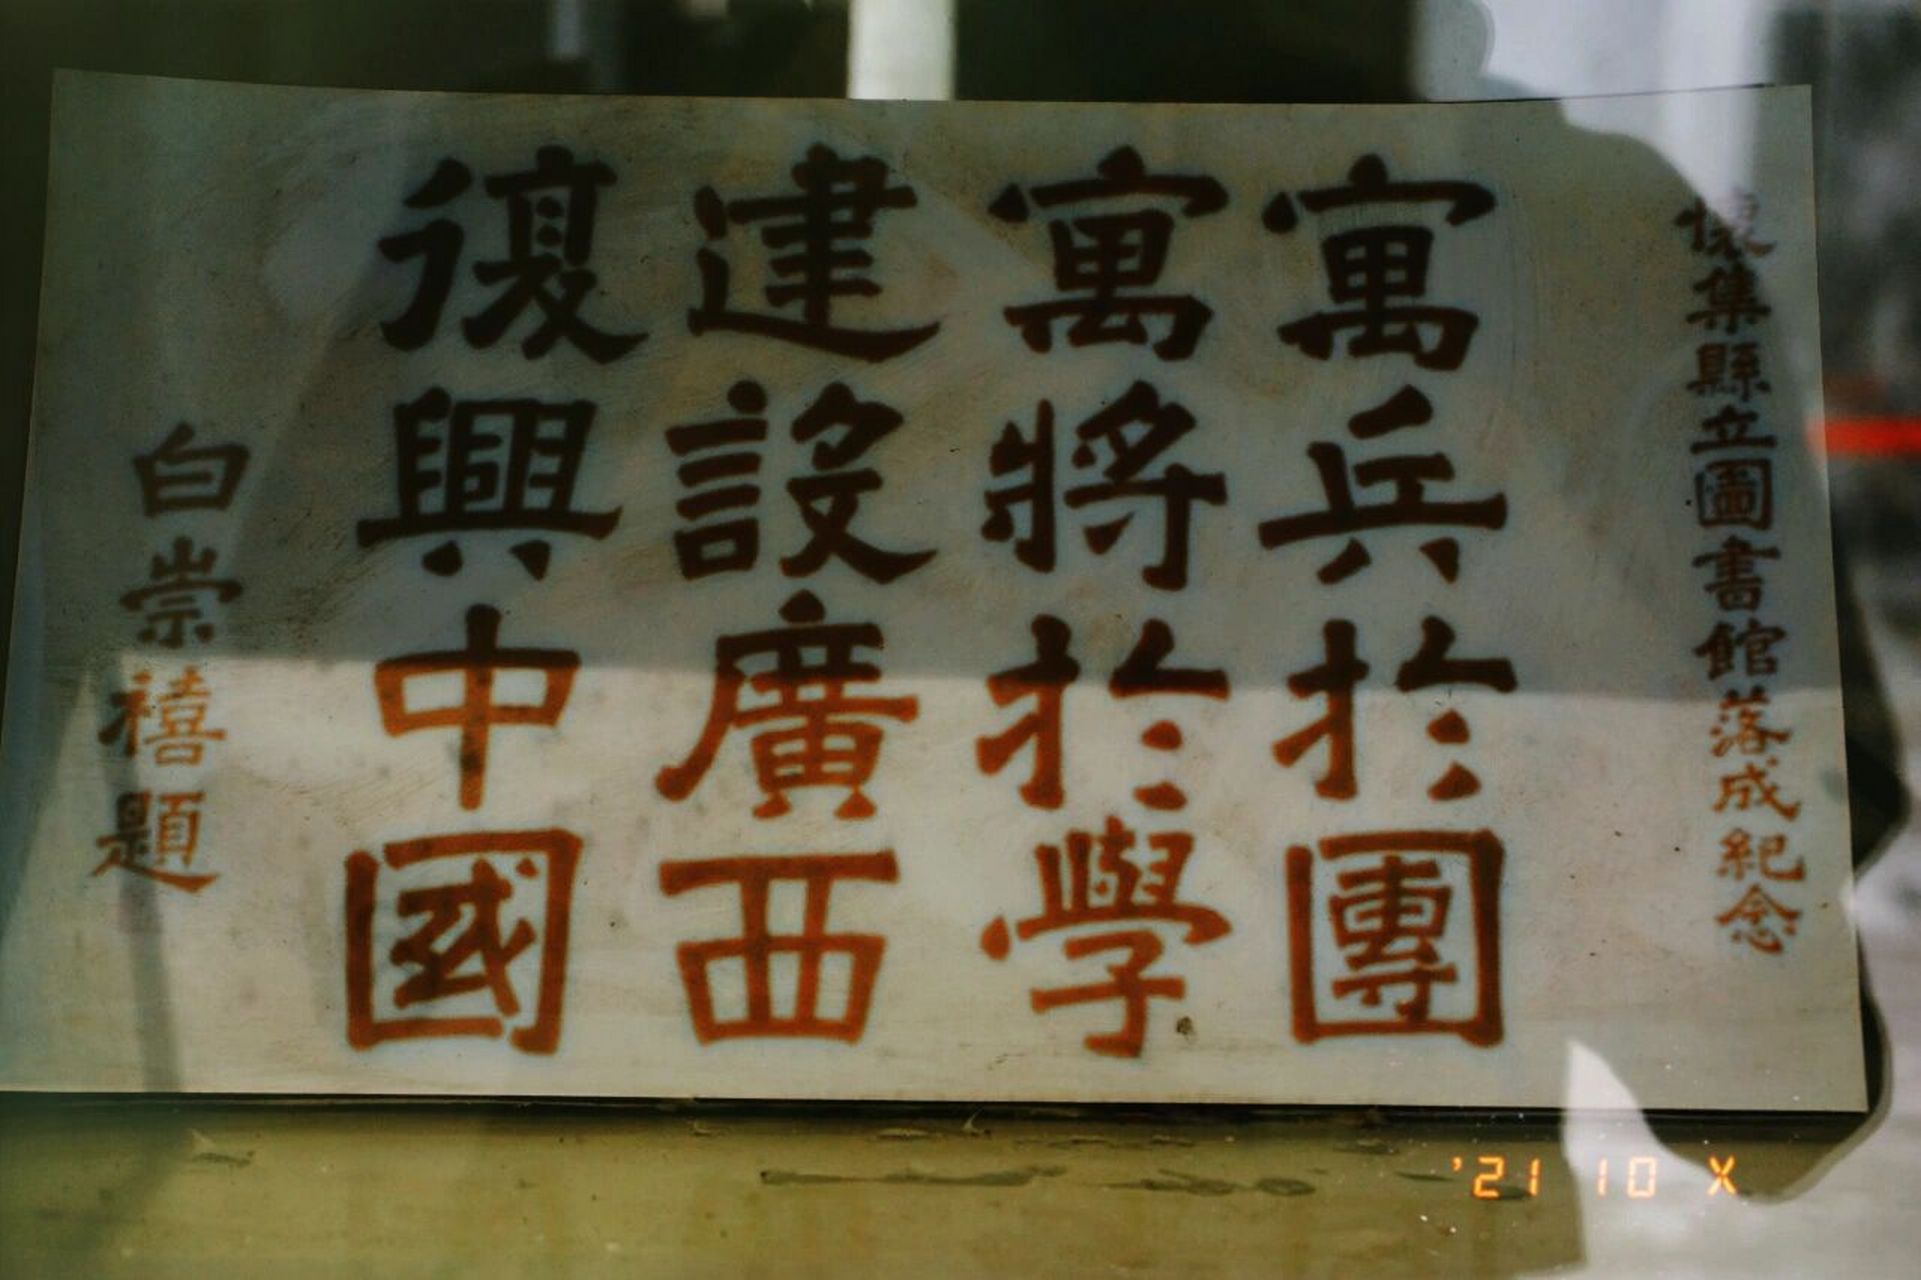 懷集縣立圖書館落成紀念
寓兵於團
寓將於學
建設廣西
復興中國
白崇禧題
'21 10 X